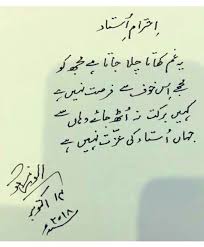 احترامِ اُستاد
یہ غم کھاتا چلا جاتا ہے مجھ کو
مجھے اِس خوف سے فرصت نہیں ہے
کہیں برکت نہ اُٹھ جائے وہاں سے
جہاں اُستاد کی عزّت نہیں ہے
۲۰۱۸